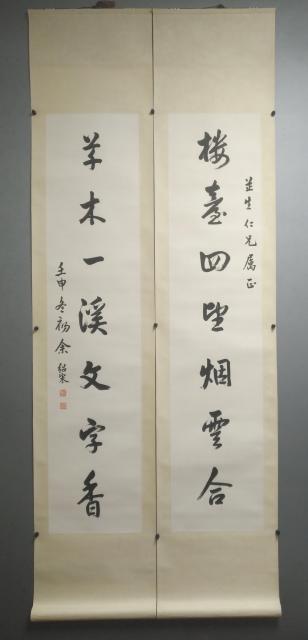 並生仁兄属正
楼臺四望烟雲合
草木一溪文字香
壬申冬初余紹宋